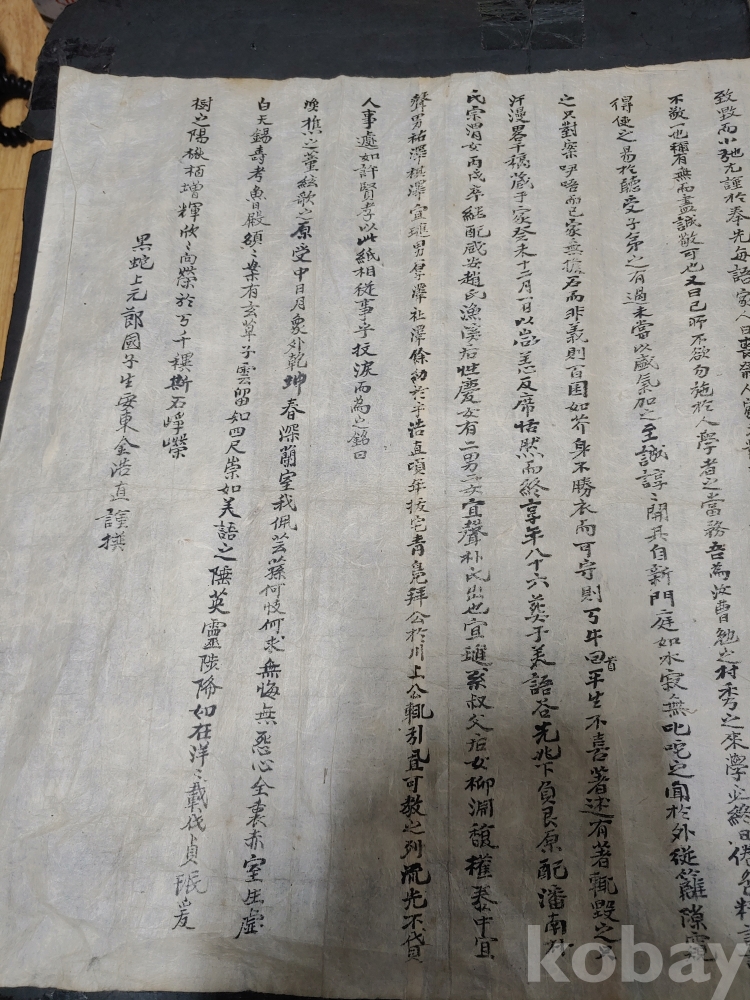 致毀而小弛尤謹於奉先每語家人曰喪
不敬一也稱有無而盡誠敬可也又曰己所不欲勿施於人學者之當務吾爲汝曹勉之村秀之來學必終日倦
得使之易於聽受子弟之有過未嘗以盛氣加之至誠諄〻開具自新門庭如水寂無叱咤之聞於外從籬隙
之只對案咿唔而已家無擔石而非義則百困如芥身不勝衣而可守則万牛回首平生不喜著述有著輒毀之
汗漫畧干稿藏于家癸未十二月一日以恙反席恬然而終享年八十六葬于美語谷先兆下負艮原配潘南朴
氏宗渭女丙戌卒継配咸安趙氏漁溪后性慶女有二男二女宜聲朴氏出也宜璡系叔父后女柳淵馥權 宜
聲男祐澤祺澤宜璡男 澤社澤餘幼於乎浩直頃年拔宅青鳧拜公於川上公輒引且可教之列流光不貸
人事遽如許賢孝以此紙相從事乎抆淚而爲之銘曰
 之 絃歌之原受中日月象外乾坤春深蘭室我佩芸蓀何忮何求無悔無 心全裏赤室生虛
白天錫壽考魯殿 〻案有玄草子雲留如四尺崇如美語之 英靈陟降如在洋〻載伐貞珉爰
樹之陽 栢增輝欣〻向榮於万千禩斯石崢嶸
黑蛇上元節國子生安東金浩直謹撰
kobay